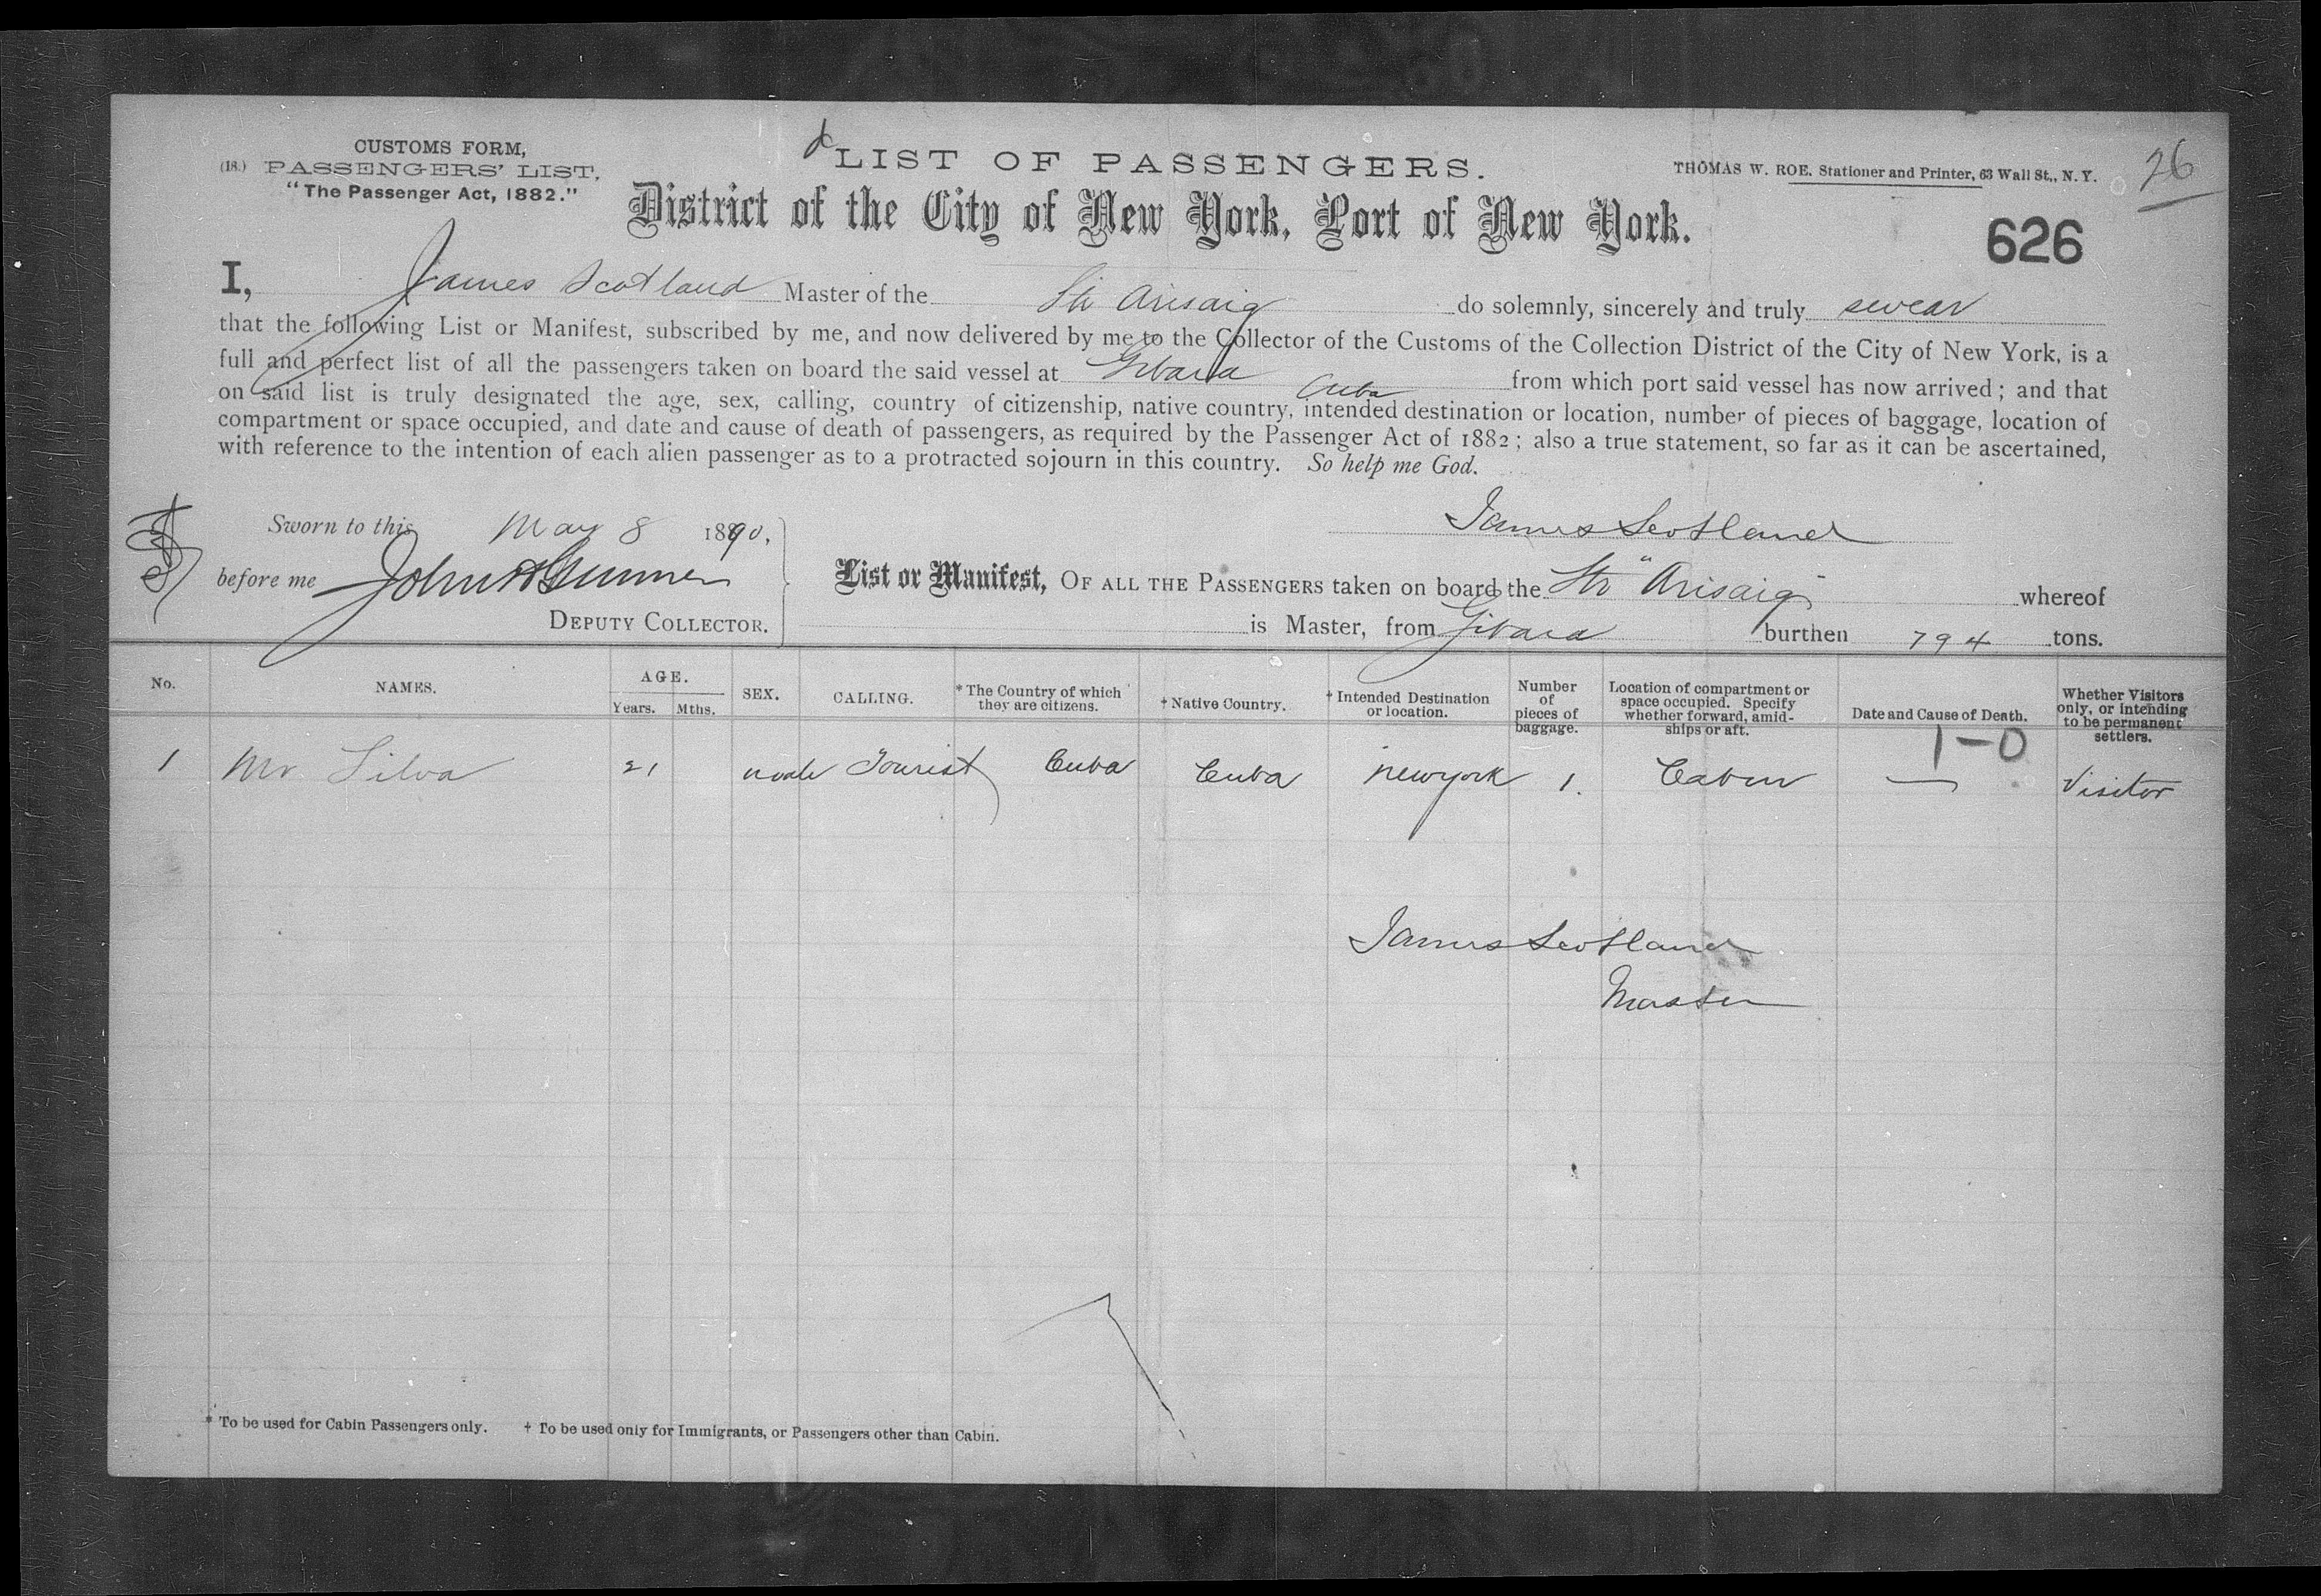 CUSTOMS FORM,
(18.) PASSENGERS' LIST,
"The Passenger Act, 1882."
LIST OF PASSENGERS.
THOMAS W. ROE. Stationer and Printer, 63 Wall St., N.Y.
26
District of the City of New York, Port of New York.
626
I, James Scotland Master of the Str Arisaig do solemnly, sincerely and truly swear
that the following List or Manifest, subscribed by me, and now delivered by me to the Collector of the Customs of the Collection District of the City of New York, is a
full and perfect list of all the passengers taken on board the said vessel at Gibara Cuba from which port said vessel has now arrived; and that
on said list is truly designated the age, sex, calling, country of citizenship, native country, intended destination or location, number of pieces of baggage, location of
compartment or space occupied, and date and cause of death of passengers, as required by the Passenger Act of 1882; also a true statement, so far as it can be ascertained,
with reference to the intention of each alien passenger as to a protracted sojourn in this country. So help me God.
Sworn to this May 8 1890,
James Scotland
before me John
DEPUTY COLLECTOR.
List or Manifest, OF ALL THE PASSENGERS taken on board the Str "Arisaig" whereof
is Master, from Gibara burthen 794 tons.
No. NAMES. AGE. Years. Mths. SEX. CALLING. * The Country of which they are citizens. † Native Country. † Intended Destination or location. Number of pieces of baggage. Location of compartment or space occupied. Specify whether forward, amid-ships or aft. Date and Cause of Death. Whether Visitors only, or intending to be permanent settlers.
1-0
1 Mr Silva 21 male Tourist Cuba Cuba New york 1. Cabin — Visitor
James Scotland
Master
* To be used for Cabin Passengers only. † To be used only for Immigrants, or Passengers other than Cabin.